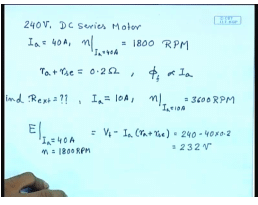 240V. DC Series Motor
Ia = 40A, n|Ia=40A = 1800 RPM
ra+rse = 0.2Ω, ϕf ∝ Ia
ind Rext=??, Ia = 10A, n|Ia=10A = 3600RPM
E|Ia=40A n=1800RPM = Vt - Ia(ra+rse) = 240-40×0.2
= 232V